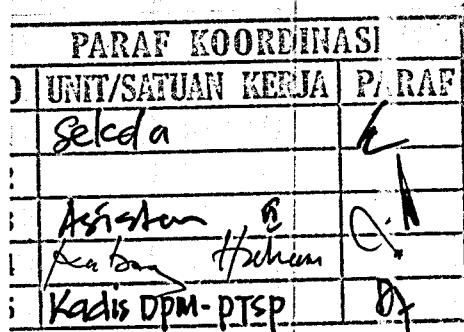 PARAF KOORDINASI
UNIT/SATUAN KERJA PARAF
Sekda
3 Asisten
4 Kabag Hukum
5 Kadis DPM-PTSP